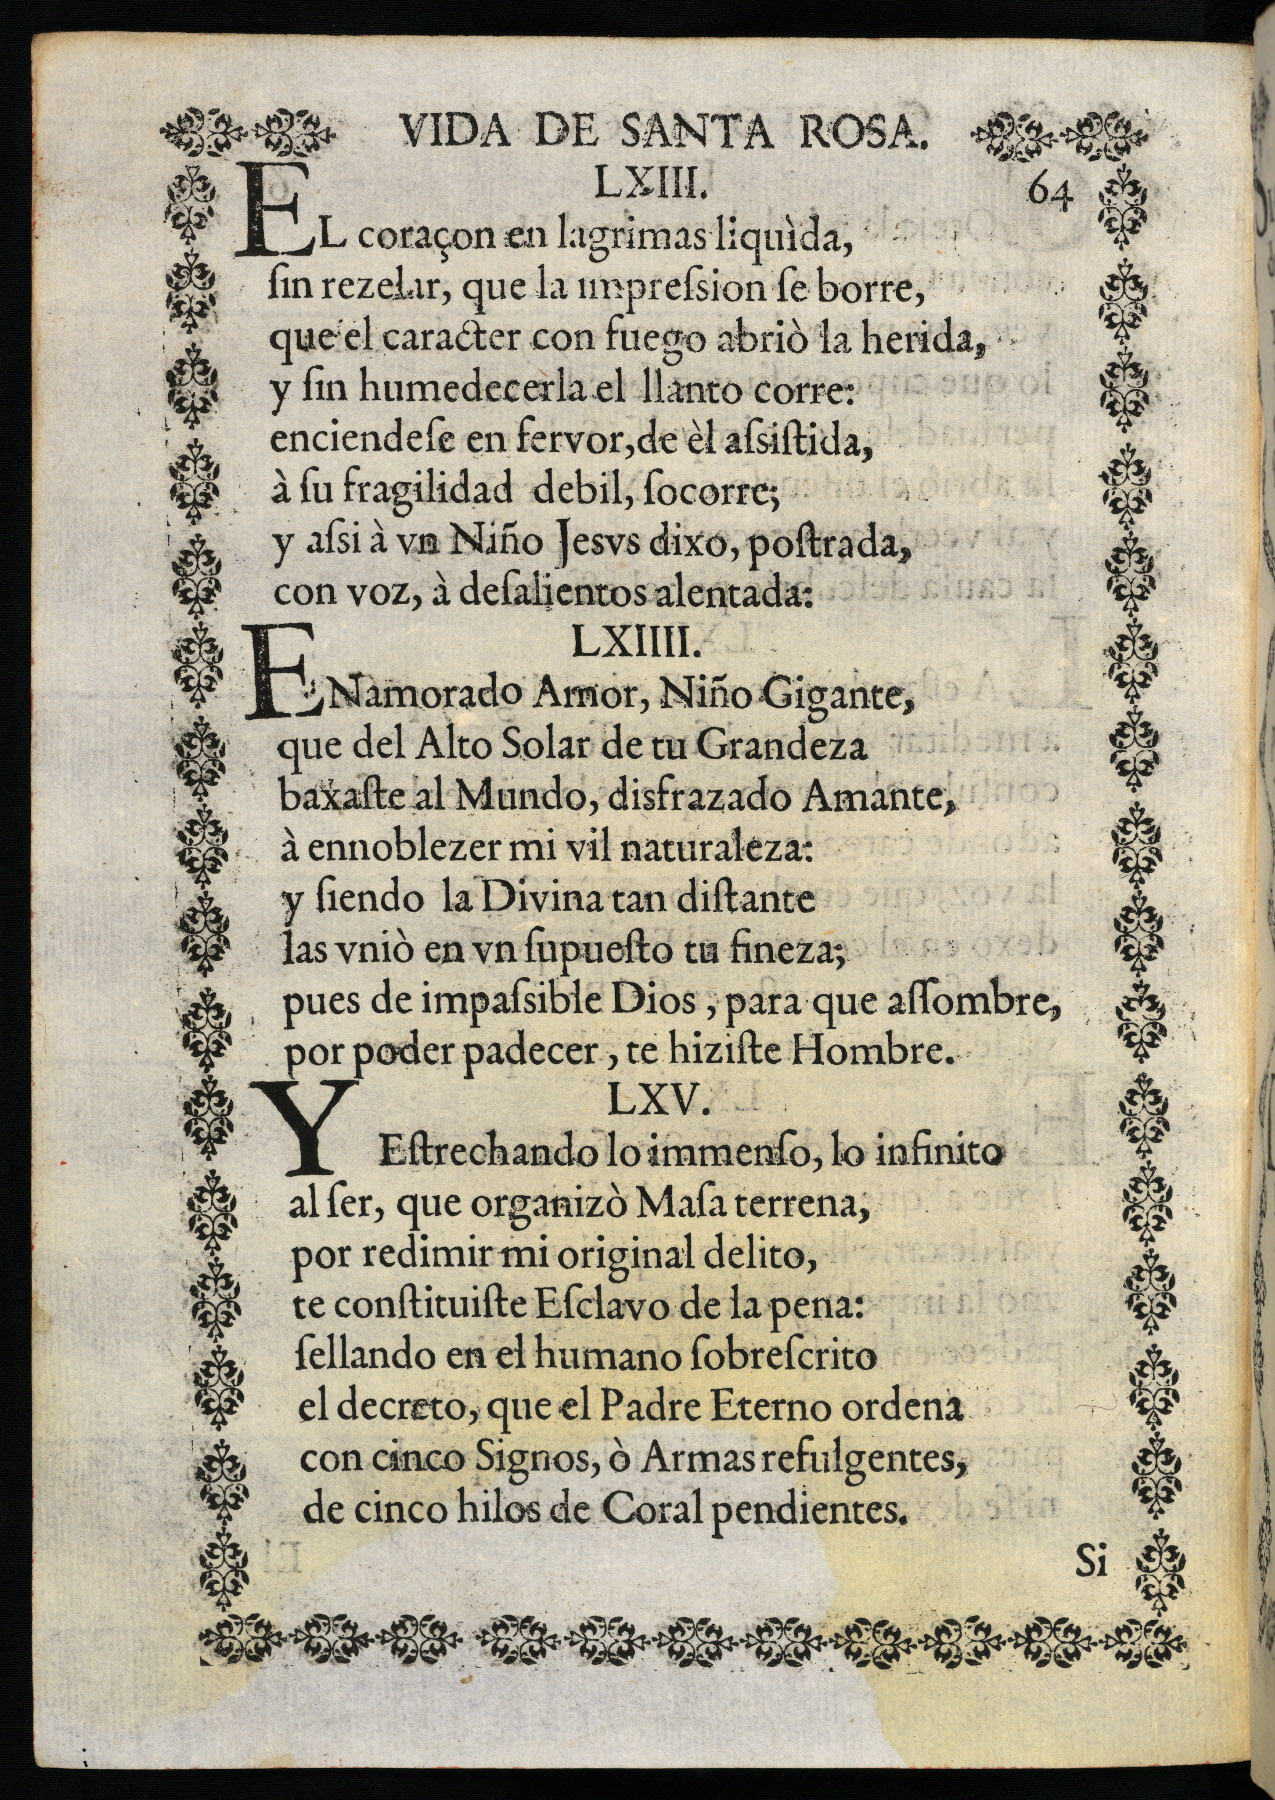 VIDA DE SANTA ROSA.
LXIII. 64
EL coraçon en lagrimas liquìda,
ſin rezelar, que la impreſsion ſe borre,
que el caracter con fuego abriò la herida,
y ſin humedecerla el llanto corre:
enciendeſe en fervor, de èl aſsiſtida,
à ſu fragilidad debil, ſocorre;
y aſsi à vn Niño Jesvs dixo, poſtrada,
con voz, à deſalientos alentada:
LXIIII.
ENamorado Amor, Niño Gigante,
que del Alto Solar de tu Grandeza
baxaſte al Mundo, disfrazado Amante,
à ennoblezer mi vil naturaleza:
y ſiendo la Divina tan diſtante
las vniò en vn ſupueſto tu fineza;
pues de impaſsible Dios, para que aſſombre,
por poder padecer, te hiziſte Hombre.
LXV.
Y Eſtrechando lo immenſo, lo infinito
al ſer, que organizò Maſa terrena,
por redimir mi original delito,
te conſtituiſte Eſclavo de la pena:
ſellando en el humano ſobreſcrito
el decreto, que el Padre Eterno ordena
con cinco Signos, ò Armas refulgentes,
de cinco hilos de Coral pendientes.
Si